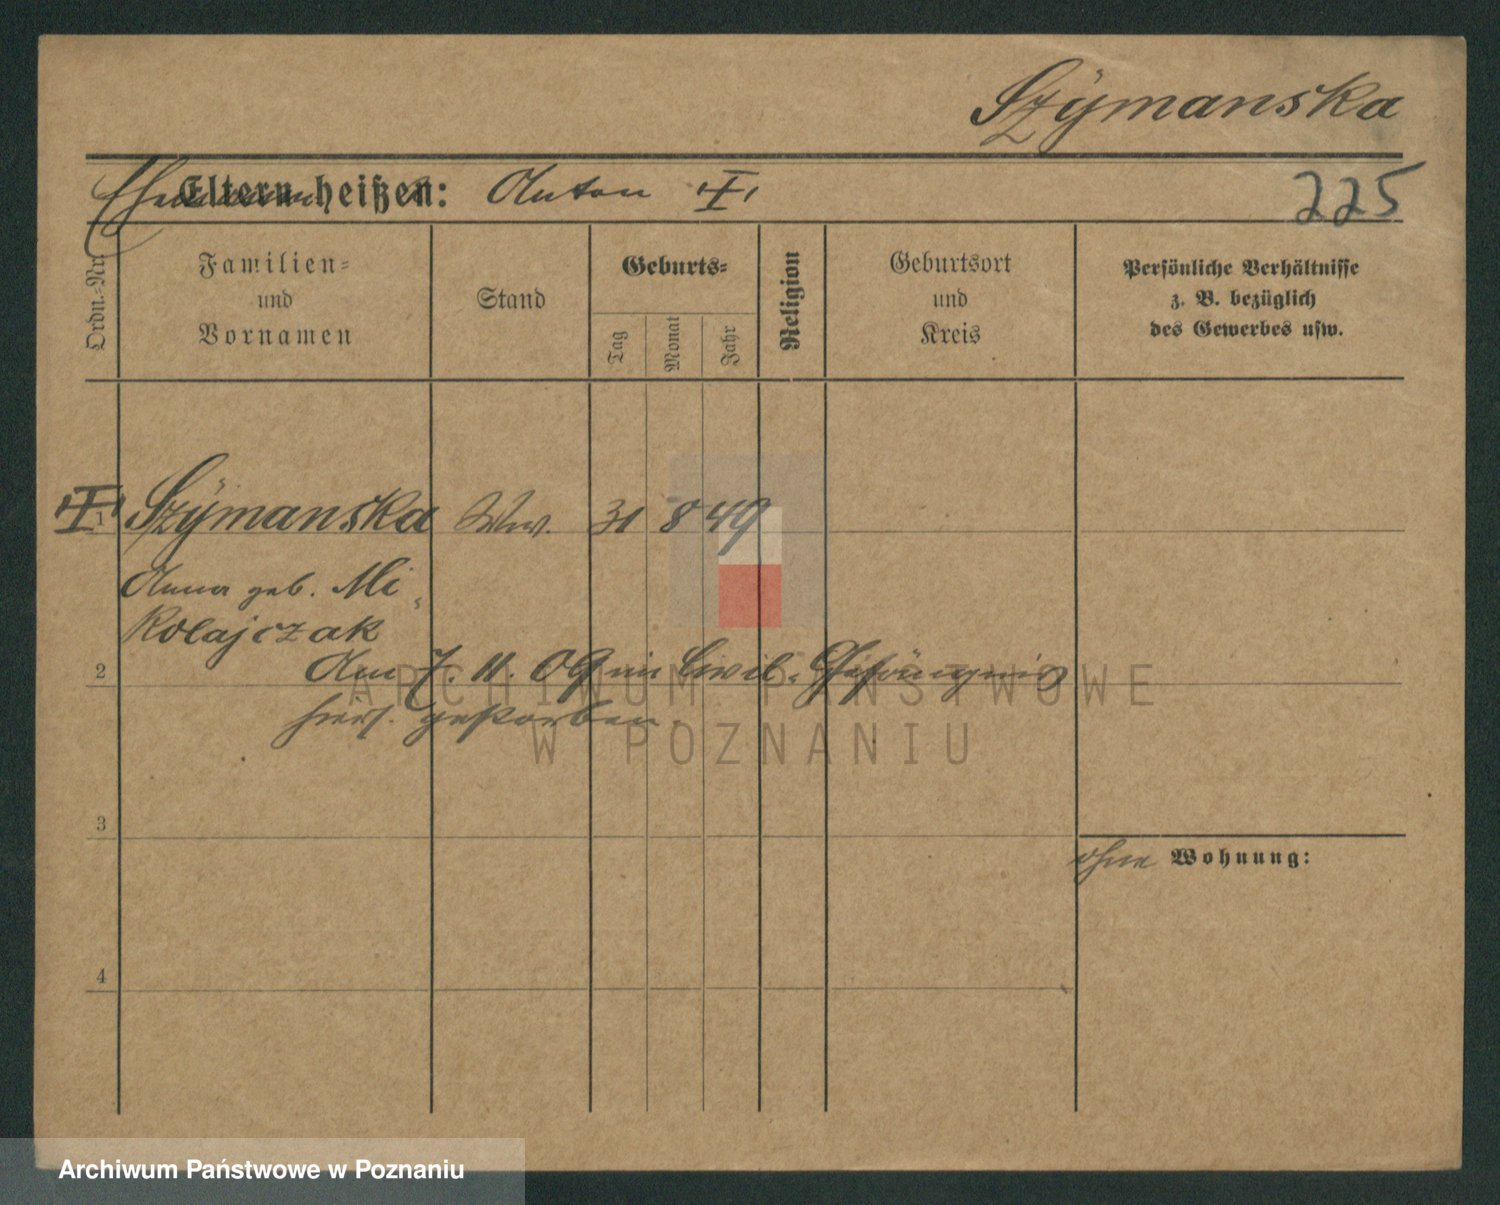 Szymanska
Eltern heißen: Anton
225
Ordn.-Nr.
Familien-
und
Vornamen
Stand
Geburts-
Tag
Monat
Jahr
Religion
Geburtsort
und
Kreis
Persönliche Verhältnisse
z. B. bezüglich
des Gewerbes usw.
1 Szymanska Ww. 31 8 49
Anna geb. Mi-
kolajczak
2
Am 7. 11. 09 im Civil-Gefängnis
hiers. gestorben.
3
ohne Wohnung:
4
ARCHIWUM PAŃSTWOWE
W POZNANIU
Archiwum Państwowe w Poznaniu